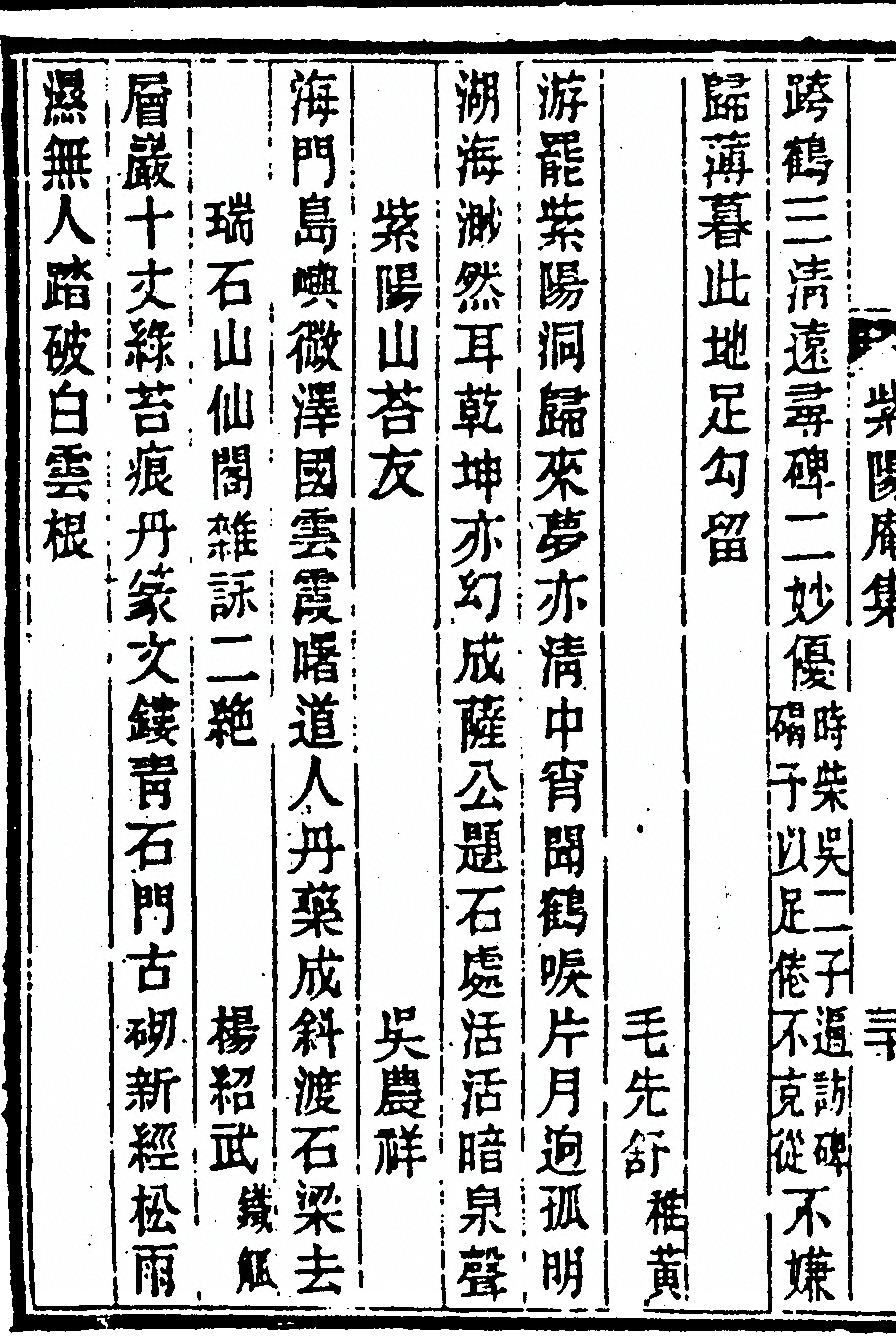 紫陽庵集
跨鶴三清遠尋碑二妙優時柴吳二子遍訪碑碣予以足倦不克從不嫌
歸薄暮此地足勾留
毛先舒稚黄
游罷紫陽洞歸來夢亦清中宵聞鶴唳片月迥孤明
湖海渺然耳乾坤亦幻成薩公題石處活活暗泉聲
紫陽山荅友 吳農祥
海門島嶼微澤國雲霞曙道人丹藥成斜渡石梁去
瑞石山仙閣雜詠二絶 楊紹武
層巖十丈綠苔痕丹篆文鏤青石門古砌新經松雨
濕無人踏破白雲根